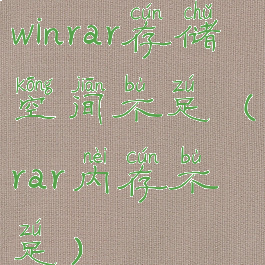 cún chǔ
winrar存储
kōng jiān bú zú
空间不足（
nèi cún bú
rar内存不
zú
足）